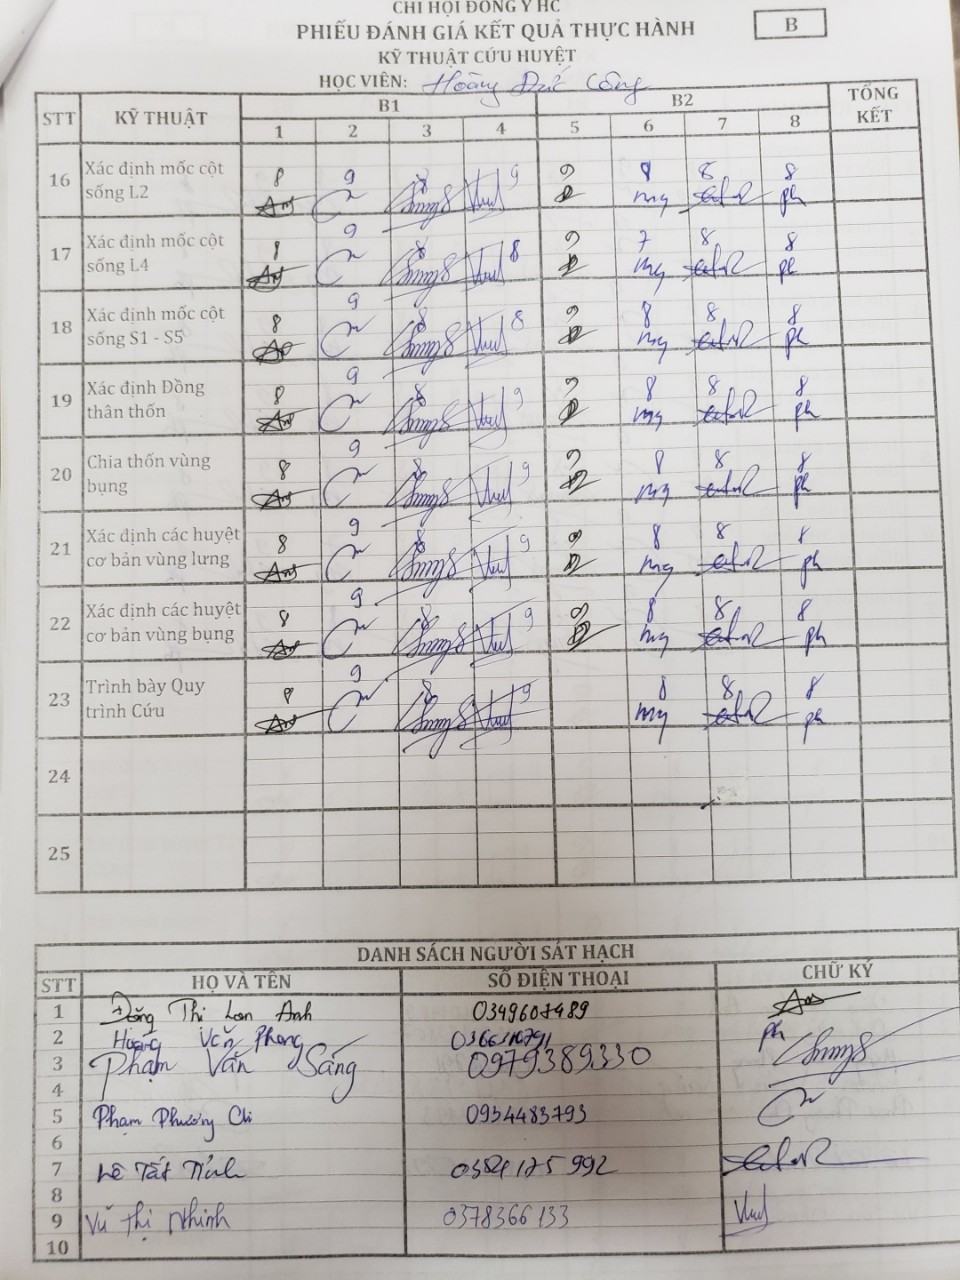 CHI HỘI ĐÔNG Y HC
PHIẾU ĐÁNH GIÁ KẾT QUẢ THỰC HÀNH
B
KỸ THUẬT CỨU HUYỆT
HỌC VIÊN: Hoàng Đức Công
STT KỸ THUẬT B1 B2 TỔNG KẾT
1 2 3 4 5 6 7 8
16 Xác định mốc cột sống L2 8 9 8 9 9 8 8 8
17 Xác định mốc cột sống L4 8 9 8 8 9 7 8 8
18 Xác định mốc cột sống S1 - S5 8 9 8 8 9 8 8 8
19 Xác định Đồng thân thốn 8 9 8 9 9 8 8 8
20 Chia thốn vùng bụng 8 9 8 9 9 8 8 8
21 Xác định các huyệt cơ bản vùng lưng 8 9 8 9 9 8 8 8
22 Xác định các huyệt cơ bản vùng bụng 8 9 8 9 9 8 8 8
23 Trình bày Quy trình Cứu 9 8 9 8 8 8
24
25
DANH SÁCH NGƯỜI SÁT HẠCH
STT HỌ VÀ TÊN SỐ ĐIỆN THOẠI CHỮ KÝ
1 Đặng Thị Lan Anh
2 Hoàng Văn Phong ph
3 Phạm Văn Sáng 0979389330
4
5 Phạm Phương Chi 0934483793
6
7 Lê Tất Tính
8
9 Vũ Thị Nhinh 0378366133
10